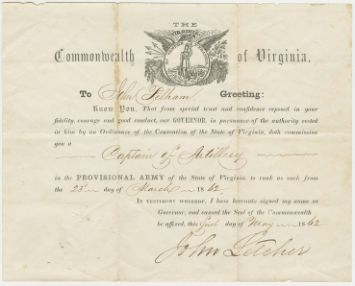 THE
Commonwealth of Virginia,
To John Pelham Greeting:
Know You, That from special trust and confidence reposed in your
fidelity, courage and good conduct, our GOVERNOR, in pursuance of the authority vested
in him by an Ordinance of the Convention of the State of Virginia, doth commission
you a
Captain of Artillery
in the PROVISIONAL ARMY of the State of Virginia, to rank as such from
the 28th day of March 1862.
In testimony whereof, I have hereunto signed my name as
Governor, and caused the Seal of the Commonwealth
to be affixed, this day of May 1862
John Letcher